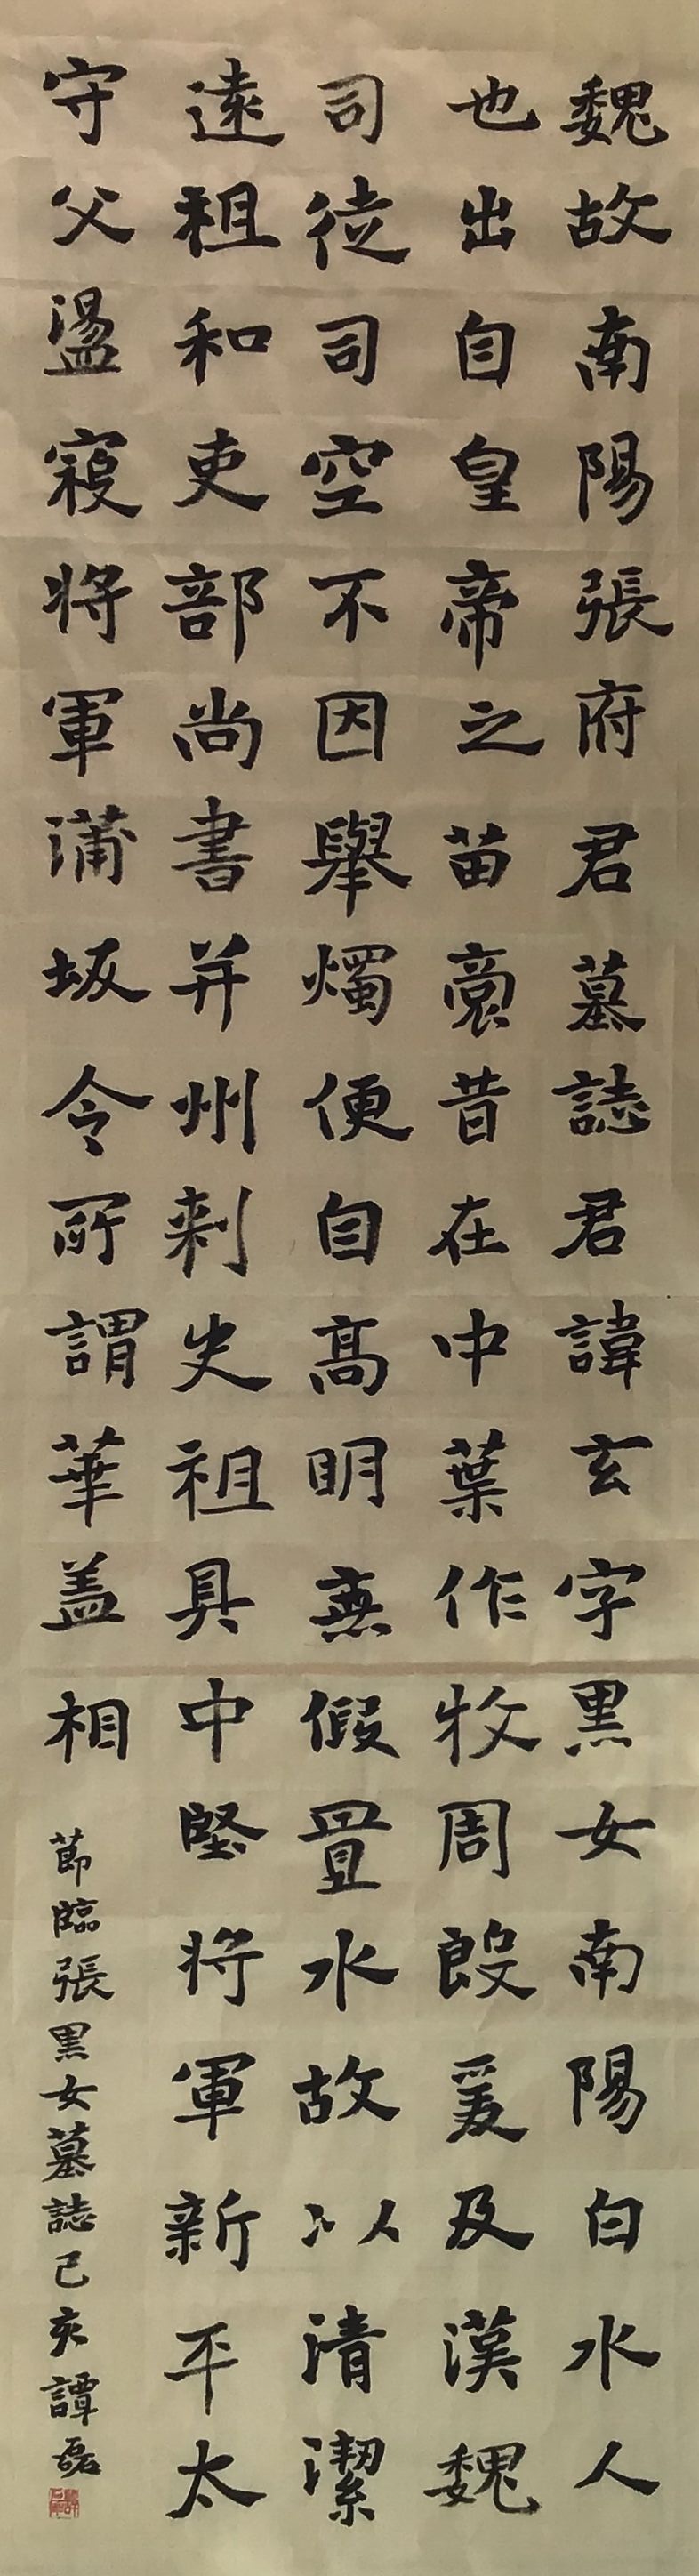 魏故南陽張府君墓誌君諱玄字黑女南陽白水人
也出自皇帝之苗裔昔在中葉作牧周殷爰及漢魏
司徒司空不因舉燭便自高明無假置水故以清潔
遠祖和吏部尚書并州刺史祖具中堅將軍新平太
守父盪寇將軍蒲坂令所謂華蓋相
節臨張黑女墓誌己亥譚磊